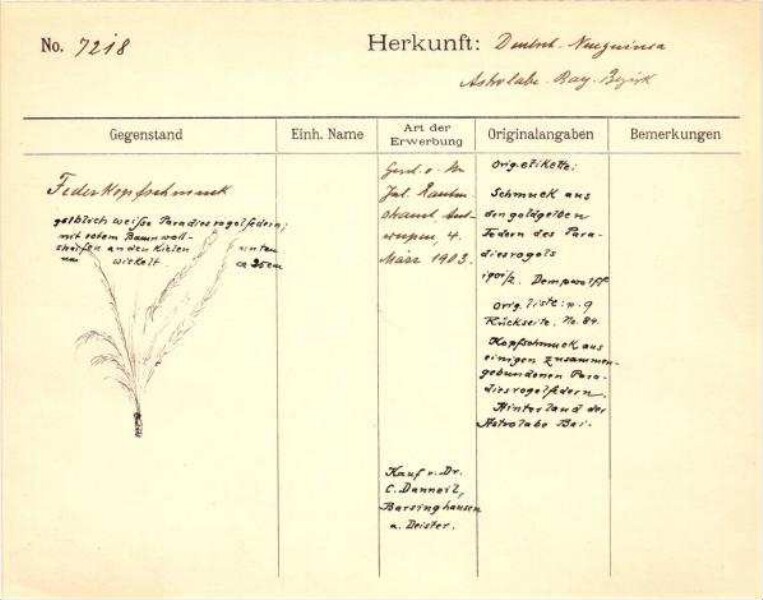 No. 7218
Herkunft: Deutsch-Neuguinea
Astrolabe-Bay-Bezirk
Gegenstand
Einh. Name
Art der
Erwerbung
Originalangaben
Bemerkungen
Federkopfschmuck
gelblich weiße Paradiesvogelfedern;
mit rotem Baumwoll-
an den Kielen unten
wickelt. ca 35cm
Jul.
4.
März 1903.
Kauf v. Dr.
C. Danneil,
Barsinghausen
a. Deister.
Orig. etikette:
Schmuck aus
den goldgelben
Federn des Para-
diesvogels
Orig. liste: n. 9
Rückseite. No. 84.
Kopfschmuck aus
einigen zusammen-
gebundenen Para-
diesvogelfedern.
Hinterland der
Astrolabe Bai.